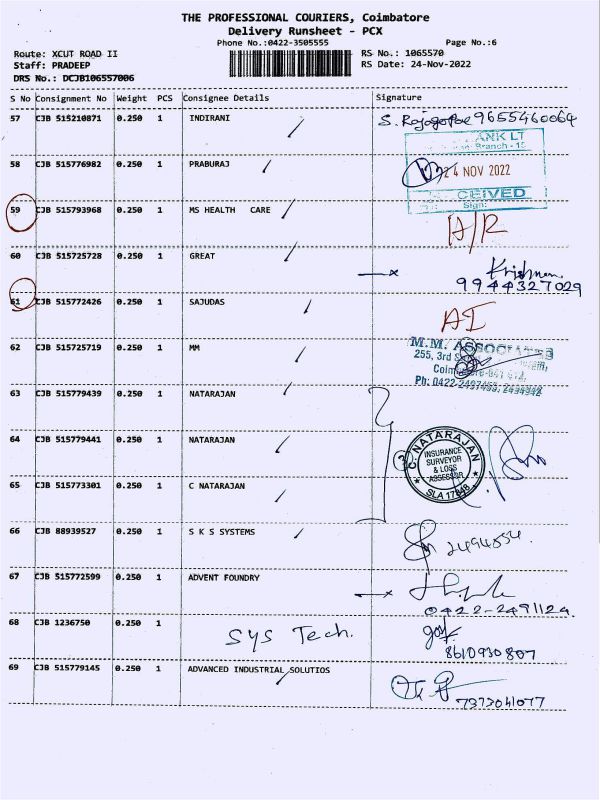 THE PROFESSIONAL COURIERS, Coimbatore
Delivery Runsheet - PCX
Phone No.:0422-3505555 Page No.:6
Route: XCUT ROAD II RS No.: 1065570
Staff: PRADEEP RS Date: 24-Nov-2022
DRS No.: DCJB106557006
S No Consignment No Weight PCS Consignee Details Signature
57 CJB 515210871 0.250 1 INDIRANI 9655460064
ANK LT
Branch - 15
58 CJB 515776982 0.250 1 PRABURAJ 24 NOV 2022
CEIVED
Sign:
59 CJB 515793968 0.250 1 MS HEALTH CARE A/R
60 CJB 515725728 0.250 1 GREAT Krishnan
9944327029
61 CJB 515772426 0.250 1 SAJUDAS AI
62 CJB 515725719 0.250 1 MM M.M. ASSOCIATES
255, 3rd
Ph: 0422-2497455, 2494942
63 CJB 515779439 0.250 1 NATARAJAN
64 CJB 515779441 0.250 1 NATARAJAN 3 C. NATARAJAN
INSURANCE
SURVEYOR
& LOSS
ASSESSOR
SLA 17848
65 CJB 515773301 0.250 1 C NATARAJAN
66 CJB 88939527 0.250 1 S K S SYSTEMS 2494554
67 CJB 515772599 0.250 1 ADVENT FOUNDRY
0422-2491124
68 CJB 1236750 0.250 1 SYS Tech.
8610930807
69 CJB 515779145 0.250 1 ADVANCED INDUSTRIAL SOLUTIOS
7373041077